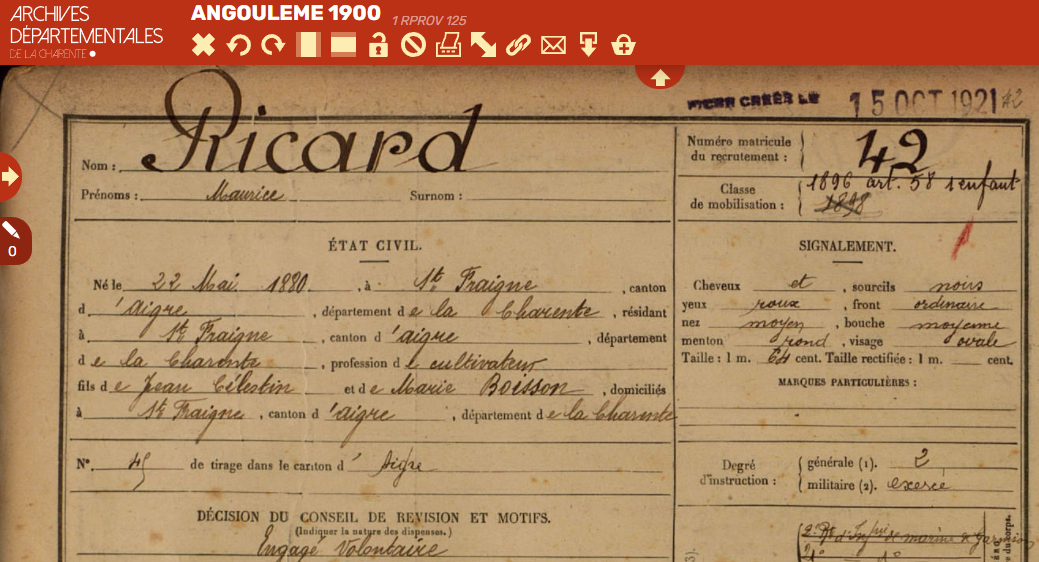 ARCHIVES
DÉPARTEMENTALES
DE LA CHARENTE
ANGOULEME 1900 1 RPROV 125
0
FICHE CRÉÉE LE 15 OCT 1921 42
Nom : Ricard
Prénoms : Maurice Surnom :
Numéro matricule du recrutement : 42
Classe de mobilisation : 1896 art. 58 1 enfant
1898
ÉTAT CIVIL.
Né le 22 Mai 1880, à St Fraigne, canton
d'aigre, département de la Charente, résidant
à St Fraigne, canton d'aigre, département
de la Charente, profession de cultivateur
fils de Jean Célestin et de Marie Boisson, domiciliés
à St Fraigne, canton d'aigre, département de la Charente
N° 45 de tirage dans le canton d' Aigre
DÉCISION DU CONSEIL DE REVISION ET MOTIFS.
(Indiquer la nature des dispenses.)
Engagé Volontaire
SIGNALEMENT.
Cheveux et, sourcils noirs
yeux roux, front ordinaire
nez moyen, bouche moyenne
menton rond, visage ovale
Taille : 1 m. 64 cent. Taille rectifiée : 1 m. cent.
MARQUES PARTICULIÈRES :
Degré d'instruction : générale (1). 2
militaire (2). exercé